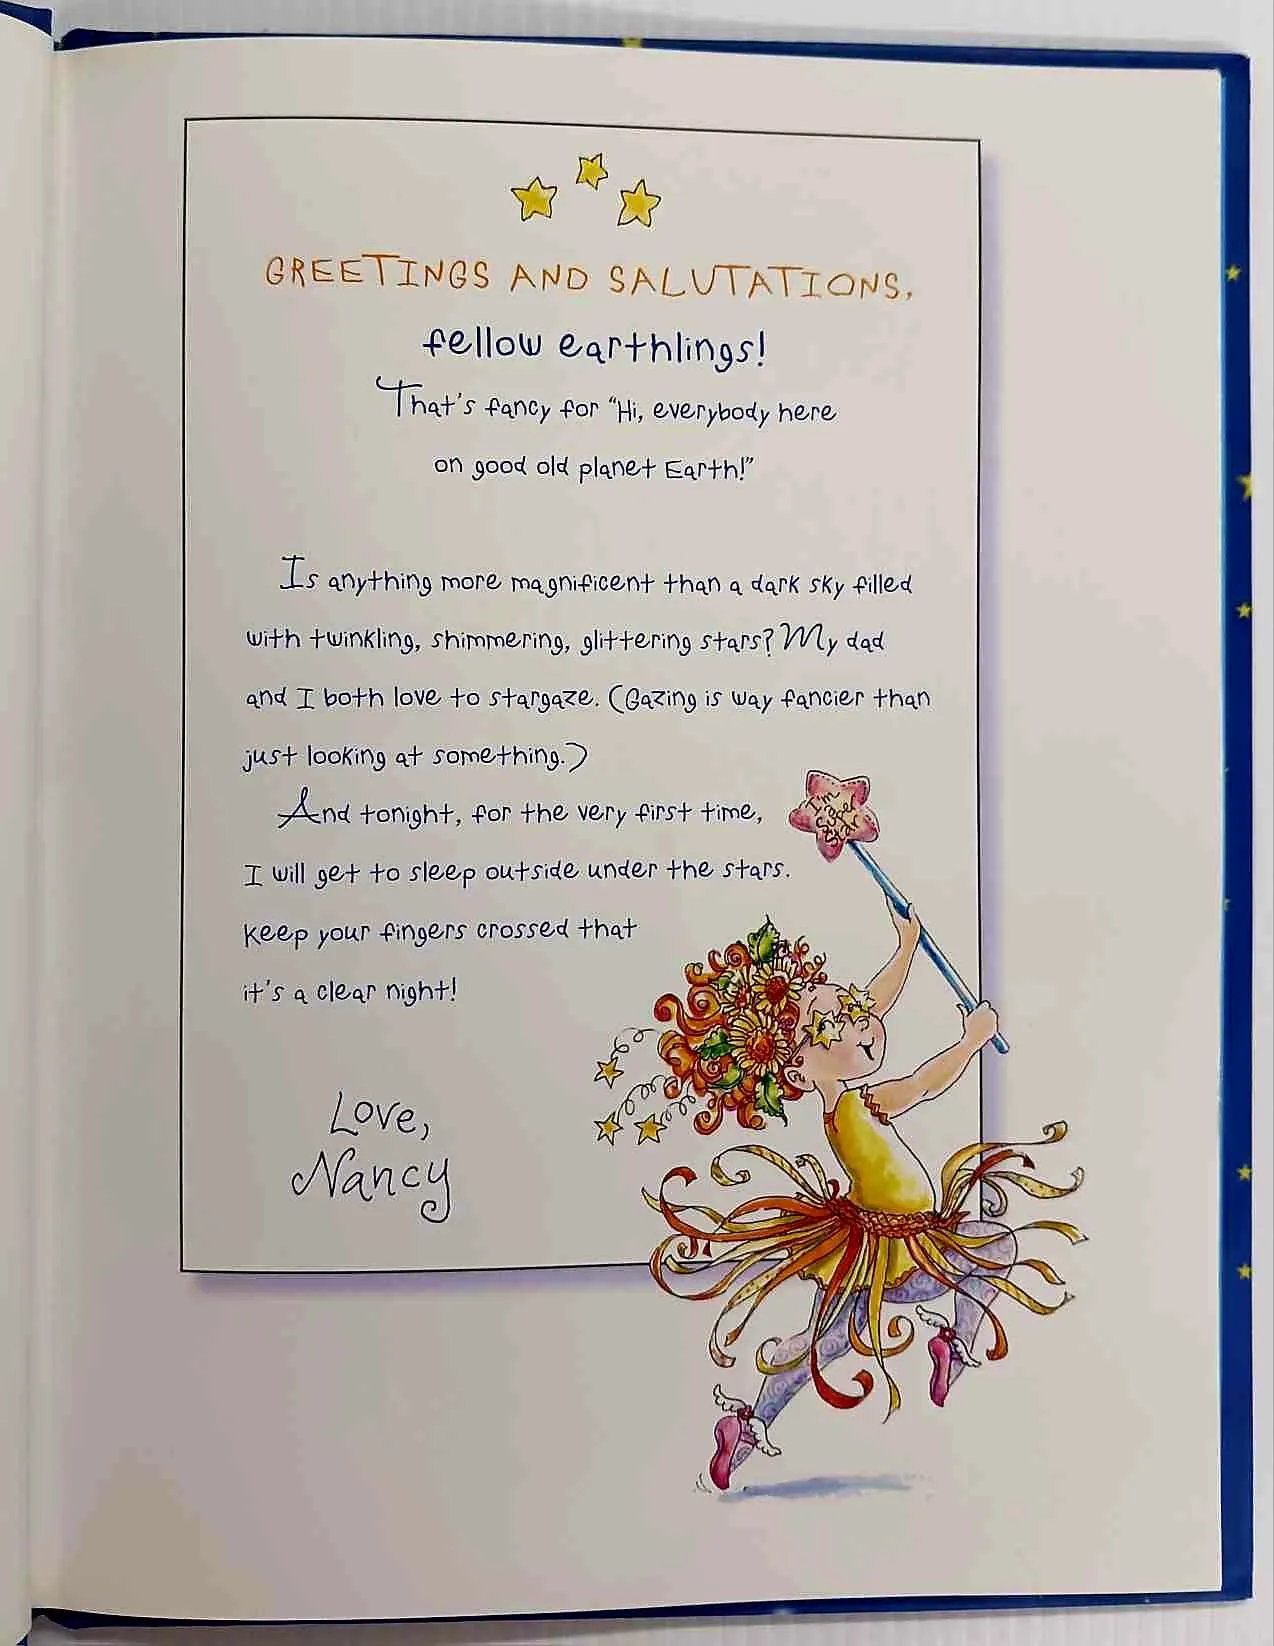 GREETINGS AND SALUTATIONS,
fellow earthlings!
That's fancy for "Hi, everybody here
on good old planet Earth!"
Is anything more magnificent than a dark sky filled
with twinkling, shimmering, glittering stars? My dad
and I both love to stargaze. (Gazing is way fancier than
just looking at something.)
And tonight, for the very first time,
I will get to sleep outside under the stars.
Keep your fingers crossed that
it's a clear night!
Love,
Nancy
I'm
a
Super
Star